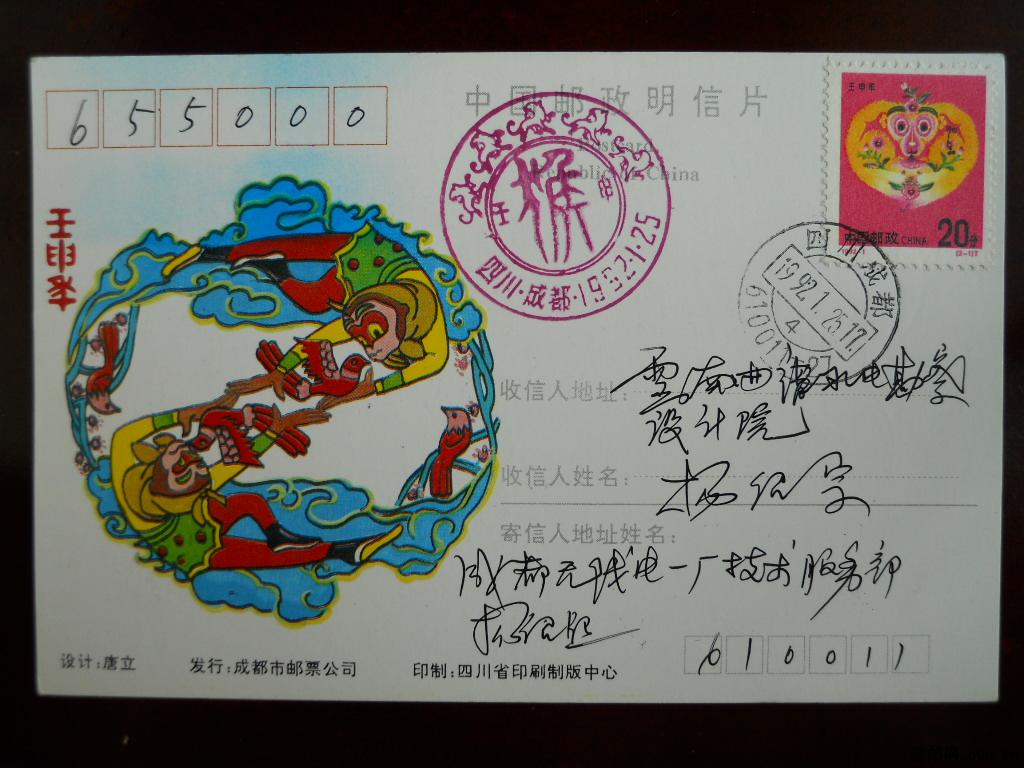 655000
中国邮政明信片
Postcard
Republic of China
壬申年
中国邮政 CHINA 20分
1992-1
(2-1)T
壬申年
壬 猴 申
四川·成都·1992.1.25
四川成都
1992.1.25.17.
4
收信人地址:
云南曲靖水电勘察
设计院
收信人姓名:
寄信人地址姓名:
成都无线电一厂技术服务部
610011
设计:唐立
发行:成都市邮票公司
印制:四川省印刷制版中心